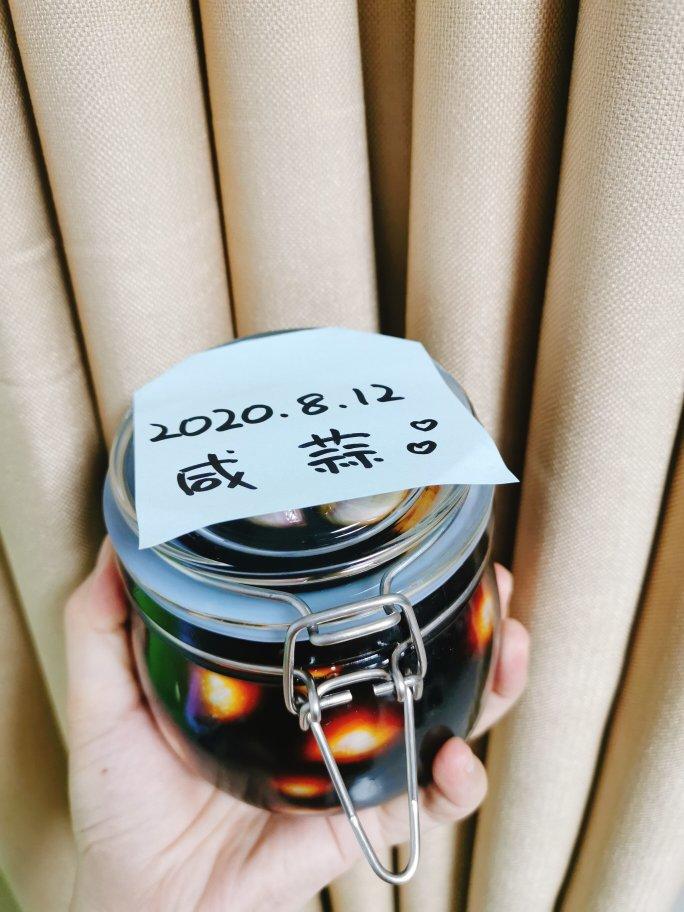 2020.8.12
咸 蒜 ♡♡